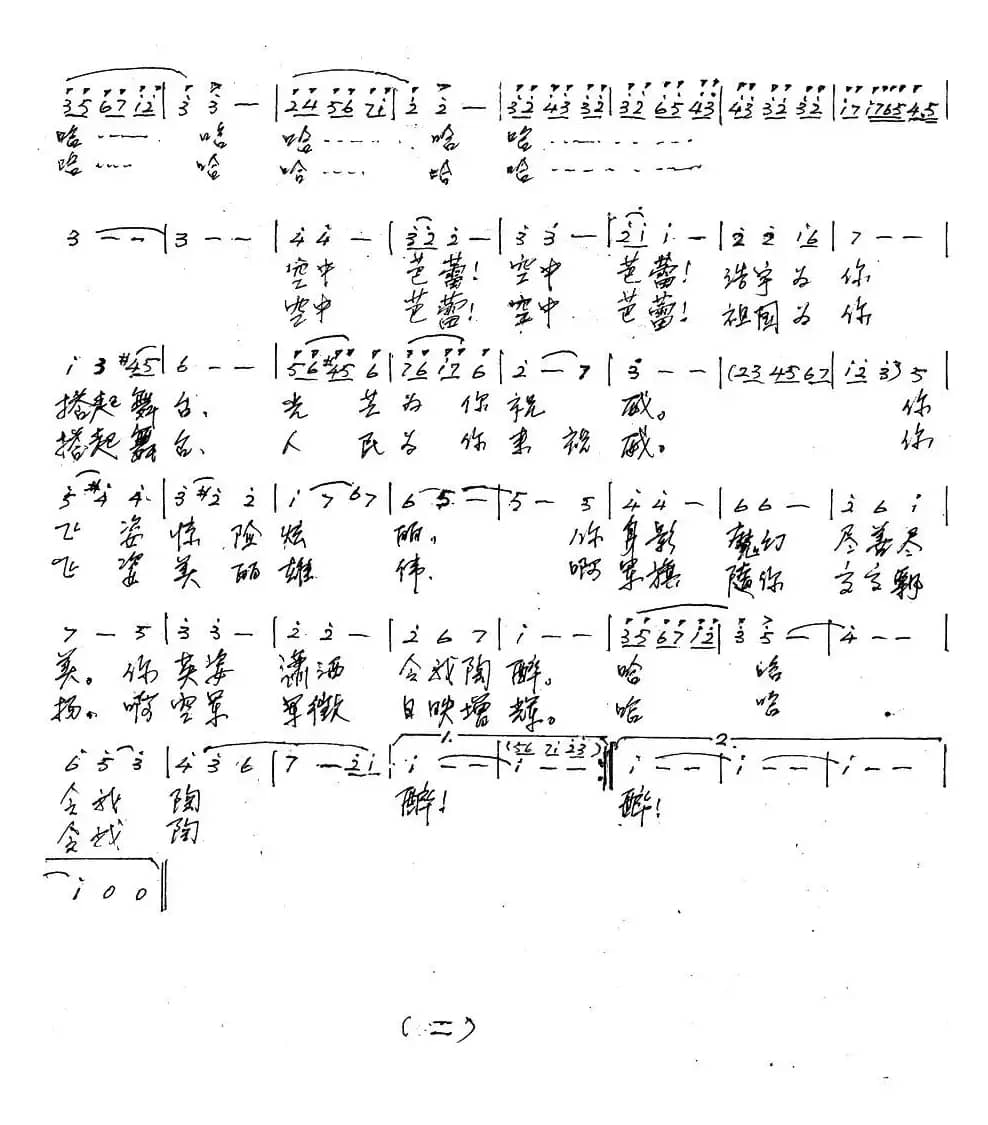 35 67 12 | 3 3 — | 24 56 71 | 2 2 — | 32 43 32 | 32 65 43 | 43 32 32 | 17 1765 4.5 |
哈…… 哈 哈…… 哈 哈……
哈…… 哈 哈…… 哈 哈……
3 — — | 3 — — | 4 4 — | 32 2 — | 3 3 — | 21 1 — | 2 2 16 | 7 — — |
空中 芭蕾! 空中 芭蕾! 浩宇为你
空中 芭蕾! 空中 芭蕾! 祖国为你
1 3 #45 | 6 — — | 56 #45 6 | 76 17 6 | 2 — 7 | 3 — — | (23 45 67 | 12 3) 5
搭起舞台、 光芒为你祝 威。 你
搭起舞台、 人民为你来祝威。 你
5 #4 4 | 3 #2 2 | 1 7 67 | 6 5 — | 5 — 5 | 4 4 — | 6 6 — | 2 6 1 |
飞姿惊险炫 丽, 你身影 魔幻 尽善尽
飞姿美丽雄 伟. 啊军旗 随你
7 — 5 | 3 3 — | 2 2 — | 2 6 7 | 1 — — | 35 67 12 | 3 5 — | 4 — — |
美。你英姿 潇洒 令我陶醉。 哈 哈
扬、啊空军 军徽 日映增辉。 哈 哈
6 5 3 | 4 3 6 | 7 — 21 | 1. 1 — — | (56 71 23) 1 — — :| 2. 1 — — | 1 — — | 1 — — |
令我 陶 醉! 醉!
令我 陶
1 0 0 ‖
(二)